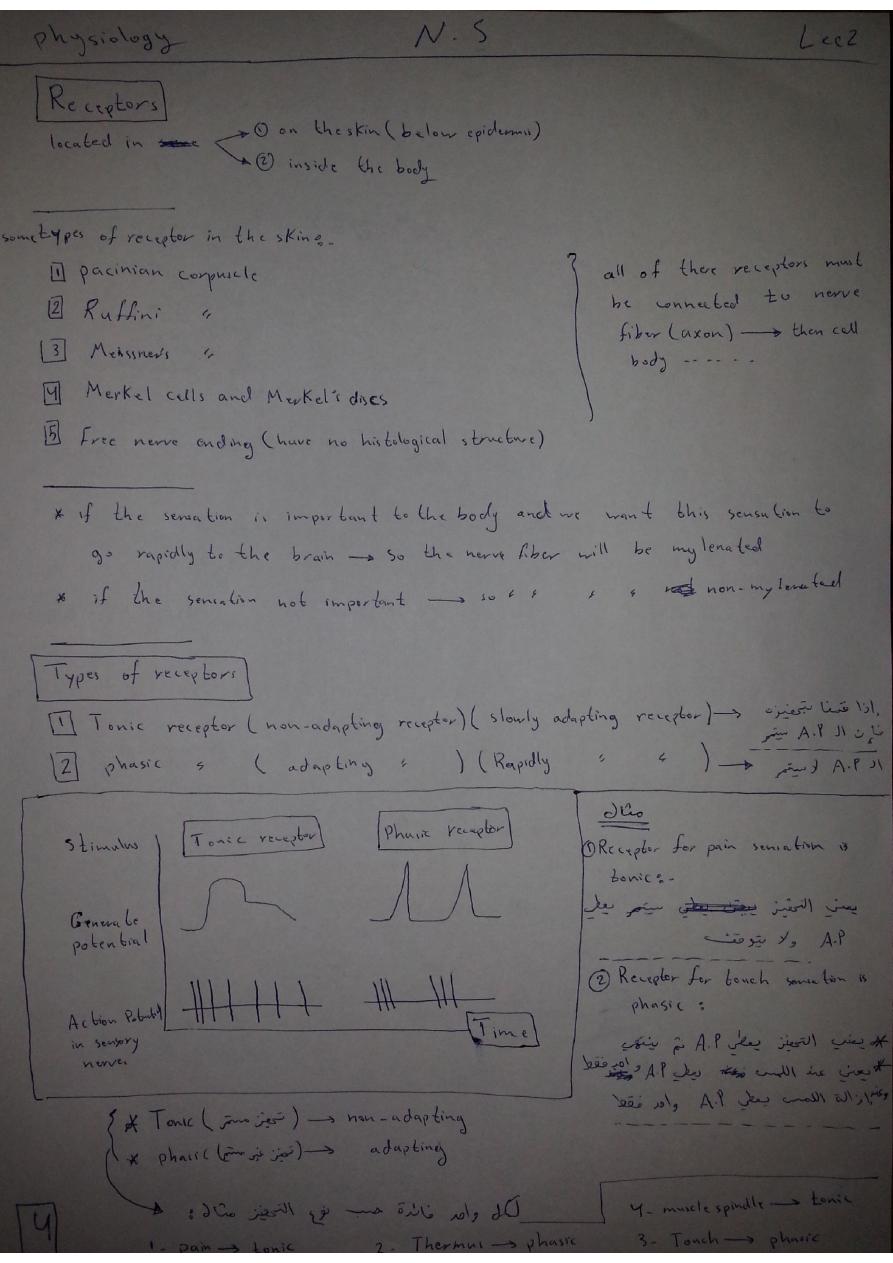 physiology N.S Lec2
Receptors
located in ① on the skin (below epidermis)
② inside the body
some types of receptor in the skin:-
1 pacinian corpuscle
2 Ruffini "
3 Meissner's "
4 Merkel cells and Merkel's discs
5 Free nerve ending (have no histological structure)
all of these receptors must
be connected to nerve
fiber (axon) → then cell
body ------
* if the sensation is important to the body and we want this sensation to
go rapidly to the brain → so the nerve fiber will be mylenated
* if the sensation not important → so " " " " non-mylenated
Types of receptors
1 Tonic receptor (non-adapting receptor) (slowly adapting receptor) → اذا قمنا بتحفيزه
فإن ال A.P سيتمر
2 phasic " (adapting " ) (Rapidly " " ) → ال A.P لا سيتمر
Stimulus Tonic receptor Phasic receptor
Generate
potential
Action Potential
in sensory
nerve.
Time
مثال
① Receptor for pain sensation is
tonic:-
يعني التحفيز سيتمر يعطي
A.P ولا يتوقف
② Receptor for touch sensation is
phasic:
* يعني التحفيز يعطي A.P ثم ينتهي
* يعني عند اللمس يعطي A.P واحد فقط
وعند ازالة اللمس يعطي A.P واحد فقط
* Tonic (تحفيز مستمر) → non-adapting
* phasic (تحفيز غير مستمر) → adapting
لكل واحد فائدة حسب نوع التحفيز مثال:
1- pain → tonic 2- Thermus → phasic 3- Touch → phasic
4- muscle spindle → tonic
4